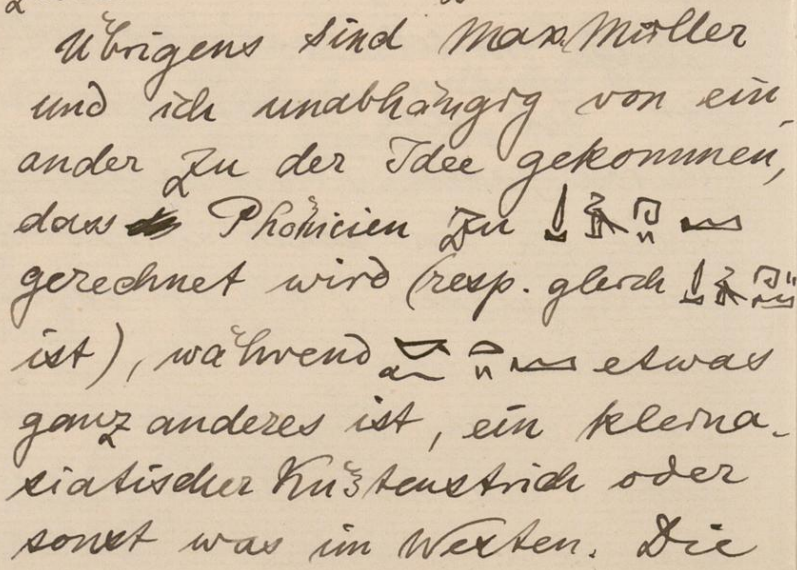 Übrigens sind Max Müller
und ich unabhängig von ein-
ander zu der Idee gekommen,
dass Phönicien zu
gerechnet wird (resp. gleich
ist), während etwas
ganz anderes ist, ein kleina-
siatischer Küstenstrich oder
sonst was im Westen. Die